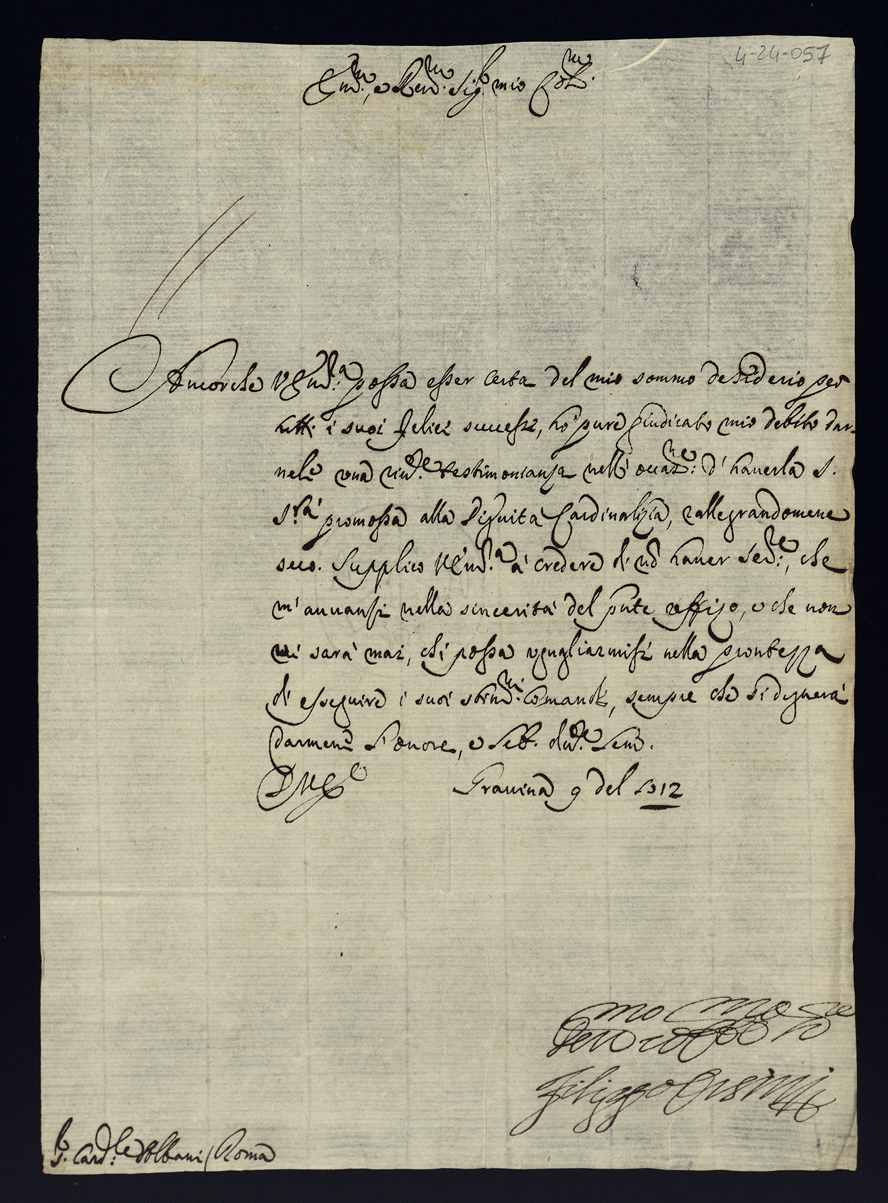 4-24-057
Em.mo, e Rev.mo Sig.r mio Col.mo
Ancorche V. Em.a possa esser certa del mio sommo desiderio per
tutti i suoi felici successi, hò pure giudicato mio debito dar-
nele una riv.te testimonianza nell' occaz.ne: d' haverla S.
S.tà promossa alla Dignità Cardinalizia, rallegrandomene
seco. Supplico V. Em.a à credere di nō haver Ser.re, che
m' avvanzi nella sincerità del pñte uffizo, e che non
vi sarà mai, chi possa uguagliarmisi nella prontezza
di esseguire i suoi stim.mi comandi, sempre che si degnerà
darmene l' onore, e
Gravina 9 del 1712
Filippo Orsini
S. Card.le Albani / Roma